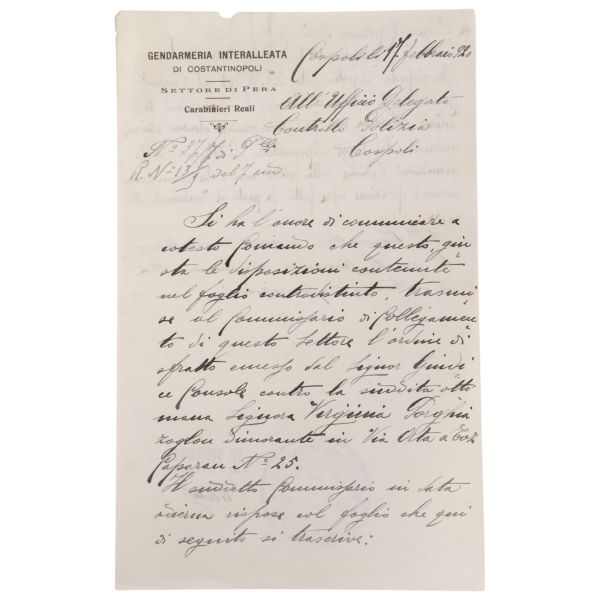 GENDARMERIA INTERALLEATA
DI COSTANTINOPOLI
SETTORE DI PERA
Carabinieri Reali
Cospoli li 17 febbraio 920
All'Ufficio Delegato
Controllo Polizia
Cospoli
N° 37/7 di P.llo
R. N° 13/9 del 7 and.
Si ha l'onore di comunicare a
cotesto Comando che questo, giu
sta le disposizioni contenute
nel foglio controdistinto, trasmi
se al Commissario di Collegamen
to di questo Settore l'ordine di
sfratto emesso dal Signor Giudi
ce Console contro la suddita otto
mana Signora Virginia
zoglou dimorante in Via Orta a
N° 25.
Il suddetto Commissario in data
odierna rispose col foglio che qui
di seguito si trascrive: